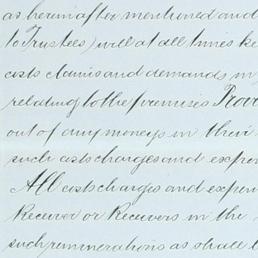 as hereinafter mentioned and
to Trustees) will at all times ke
costs claims and demands in
relating to the premises Prov
out of any moneys in their
such costs charges and expen
All costs charges and expen
Receiver or Receivers in the
such remunerations as shall b